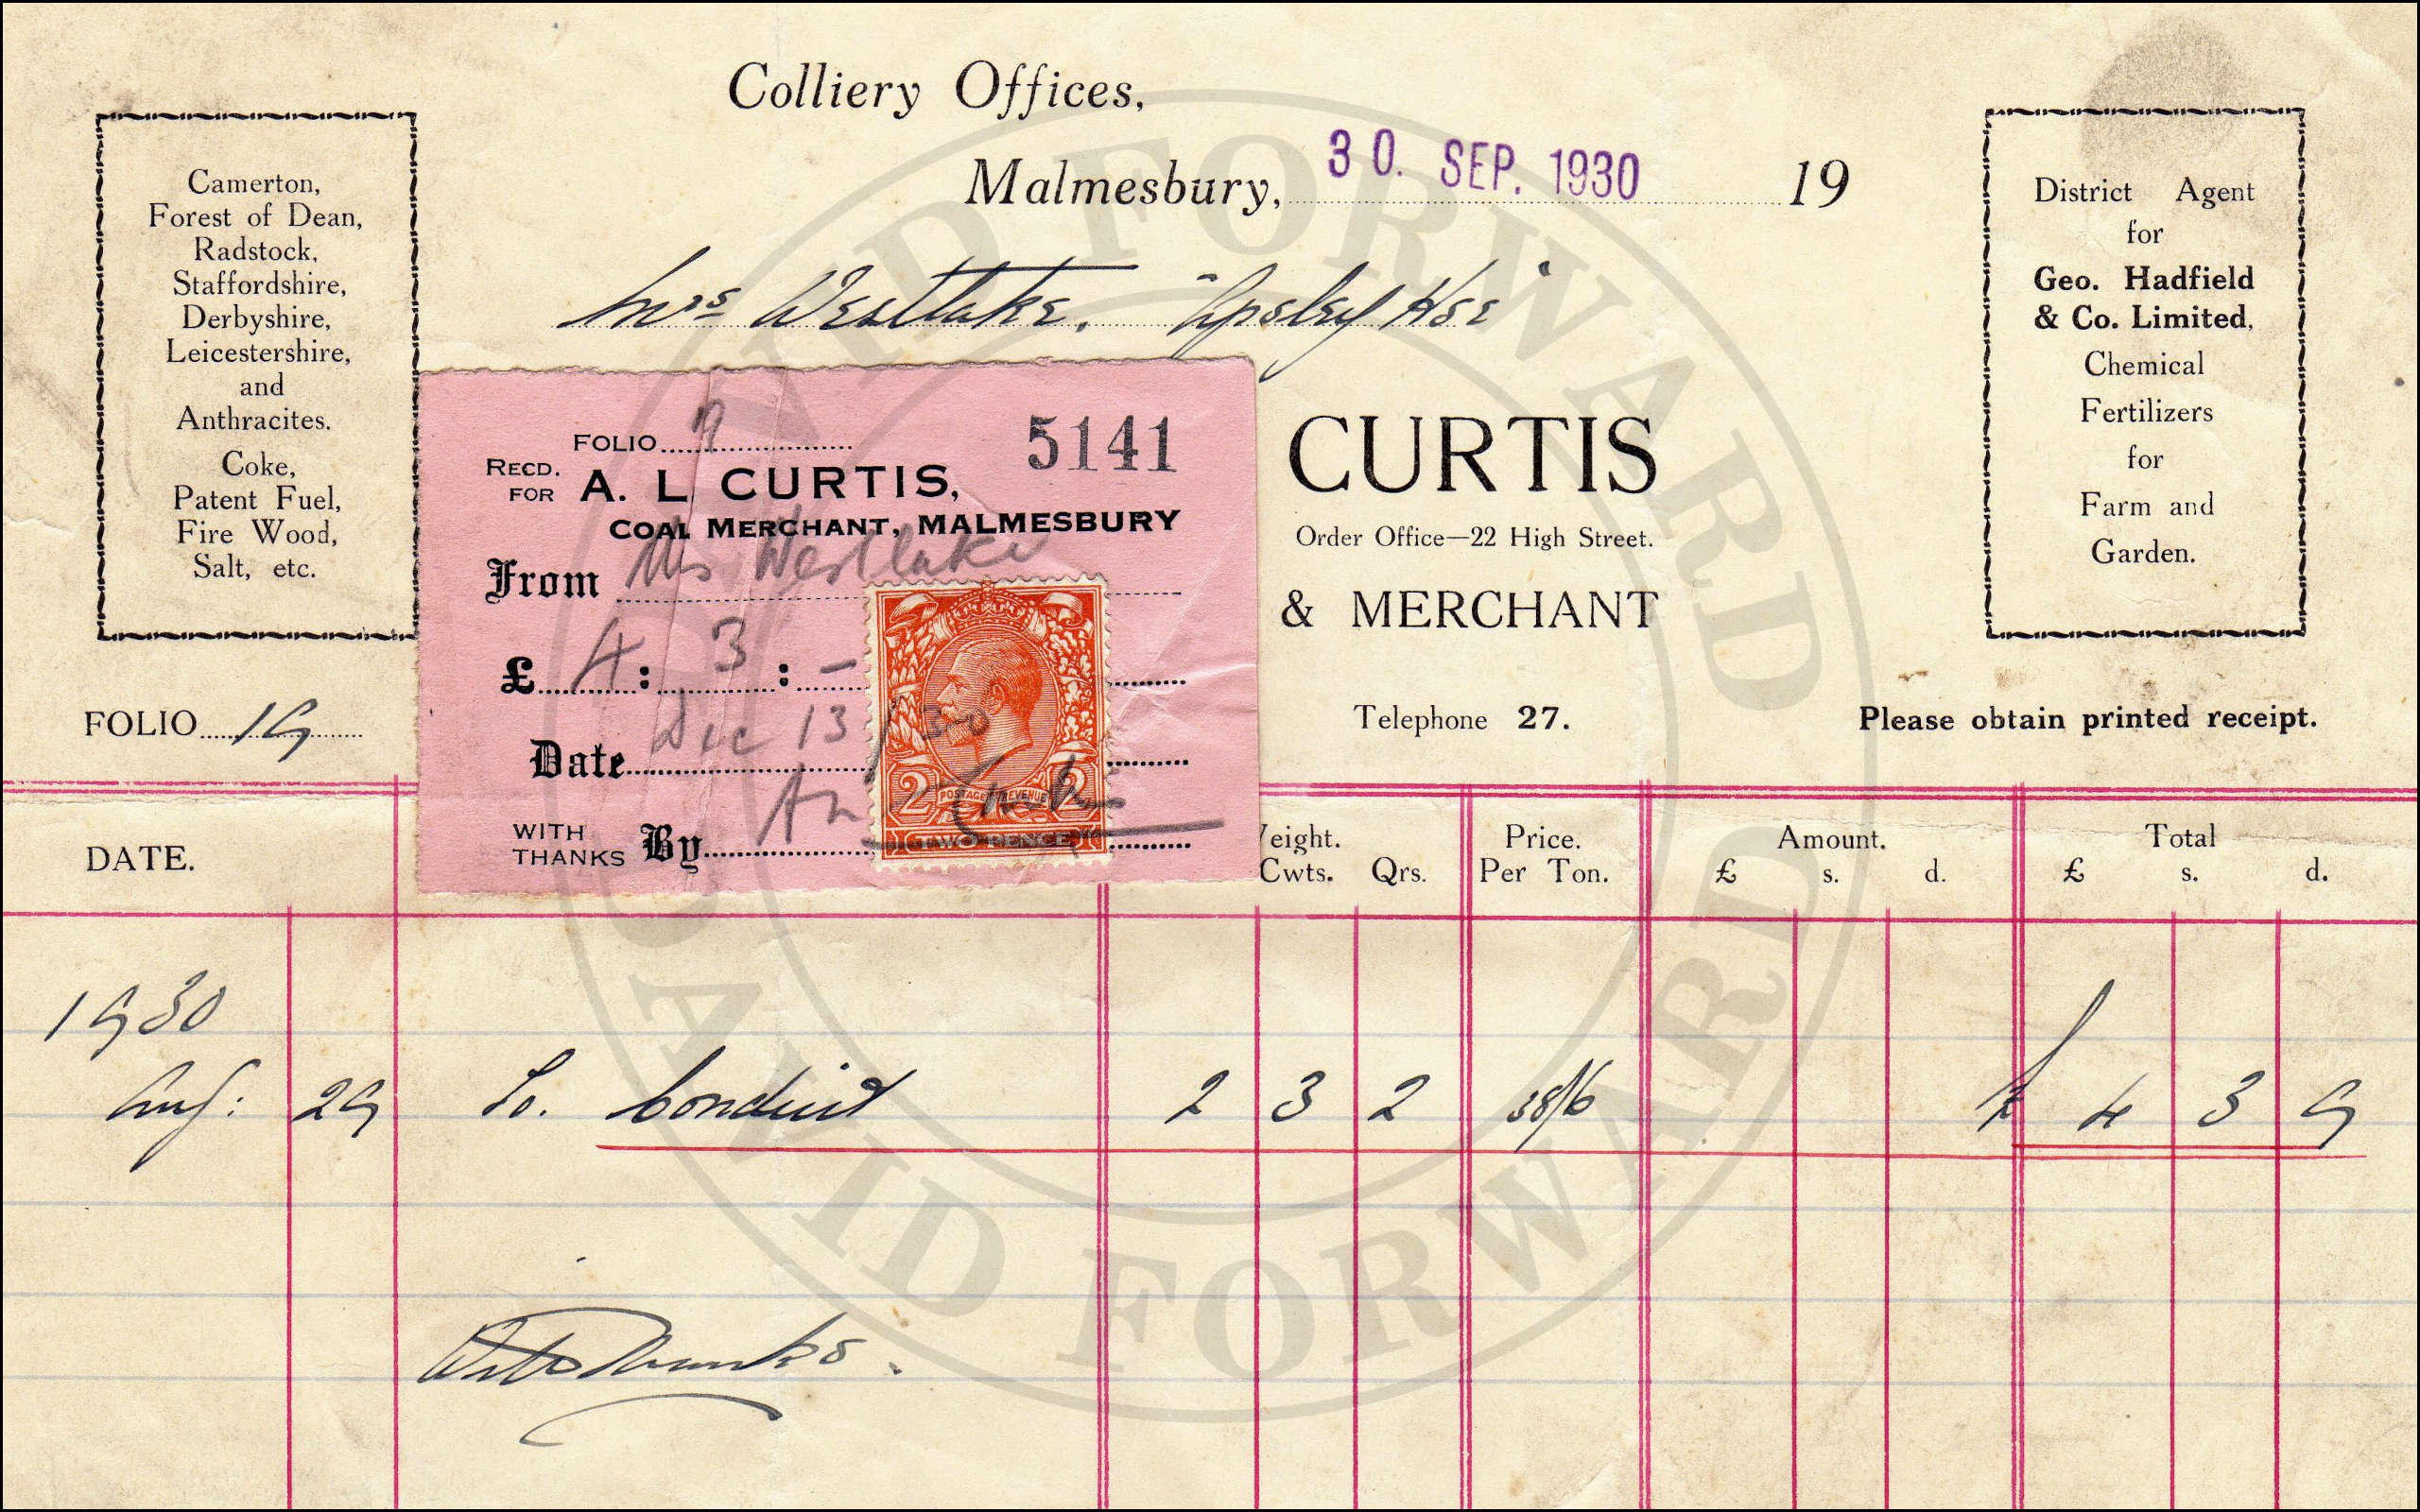 Colliery Offices,
Malmesbury, 30. SEP. 1930 19
Mrs Westlake. "Apsley Hse"
Camerton,
Forest of Dean,
Radstock,
Staffordshire,
Derbyshire,
Leicestershire,
and
Anthracites.
Coke,
Patent Fuel,
Fire Wood,
Salt, etc.
District Agent
for
Geo. Hadfield
& Co. Limited,
Chemical
Fertilizers
for
Farm and
Garden.
FOLIO 9 5141
RECD. FOR A. L CURTIS,
COAL MERCHANT, MALMESBURY
From Mrs Westlake
£ 4 : 3 : -
Date Dec 13/30
WITH THANKS By
POSTAGE REVENUE
2 2
TWO PENCE
CURTIS
Order Office—22 High Street.
& MERCHANT
Telephone 27.
FOLIO 19
Please obtain printed receipt.
DATE. eight. Price. Amount. Total
Cwts. Qrs. Per Ton. £ s. d. £ s. d.
1930
Aug: 29 To. 2 3 2 38/6 £ 4 3 9
With Thanks.
DAVID FORWARD
DAVID FORWARD